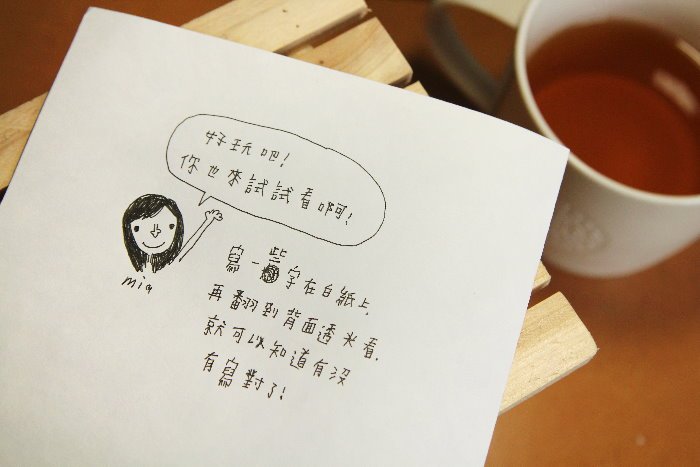 好玩吧!
你也來試試看啊!
mia
寫一些字在白紙上,
再翻到背面透光看,
就可以知道有沒
有寫對了!